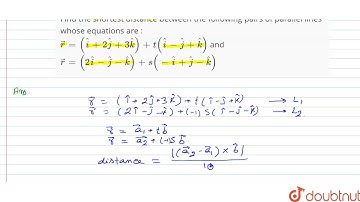 Find the shortest distance between the following pairs of parallel lines
whose equations are :
r⃗ = (î + 2ĵ + 3k̂) + t(î − ĵ + k̂) and
r⃗ = (2î − ĵ − k̂) + s(−î + ĵ − k̂)
Ans.
r⃗ = (î + 2ĵ + 3k̂) + t(î − ĵ + k̂) → L₁
r⃗ = (2î − ĵ − k̂) + (−1) S(î − ĵ − k̂) → L₂
r⃗ = a⃗₁ + t b⃗
r⃗ = a⃗₂ + (−1)S b⃗
distance = |(a⃗₂ − a⃗₁) × b⃗|
doubtnut